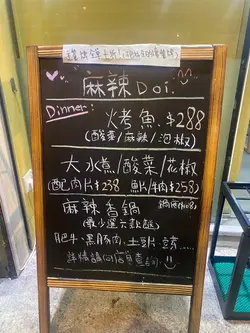 麻辣Doi.
Dinner:
烤魚 $288
(酸菜/麻辣/泡椒)
大水煮/酸菜/花椒
(配肉片$238 魚片$258)
麻辣香鍋
(最少選六款餸)
肥牛、黑豚肉、土豆
詳情請回店員查詢